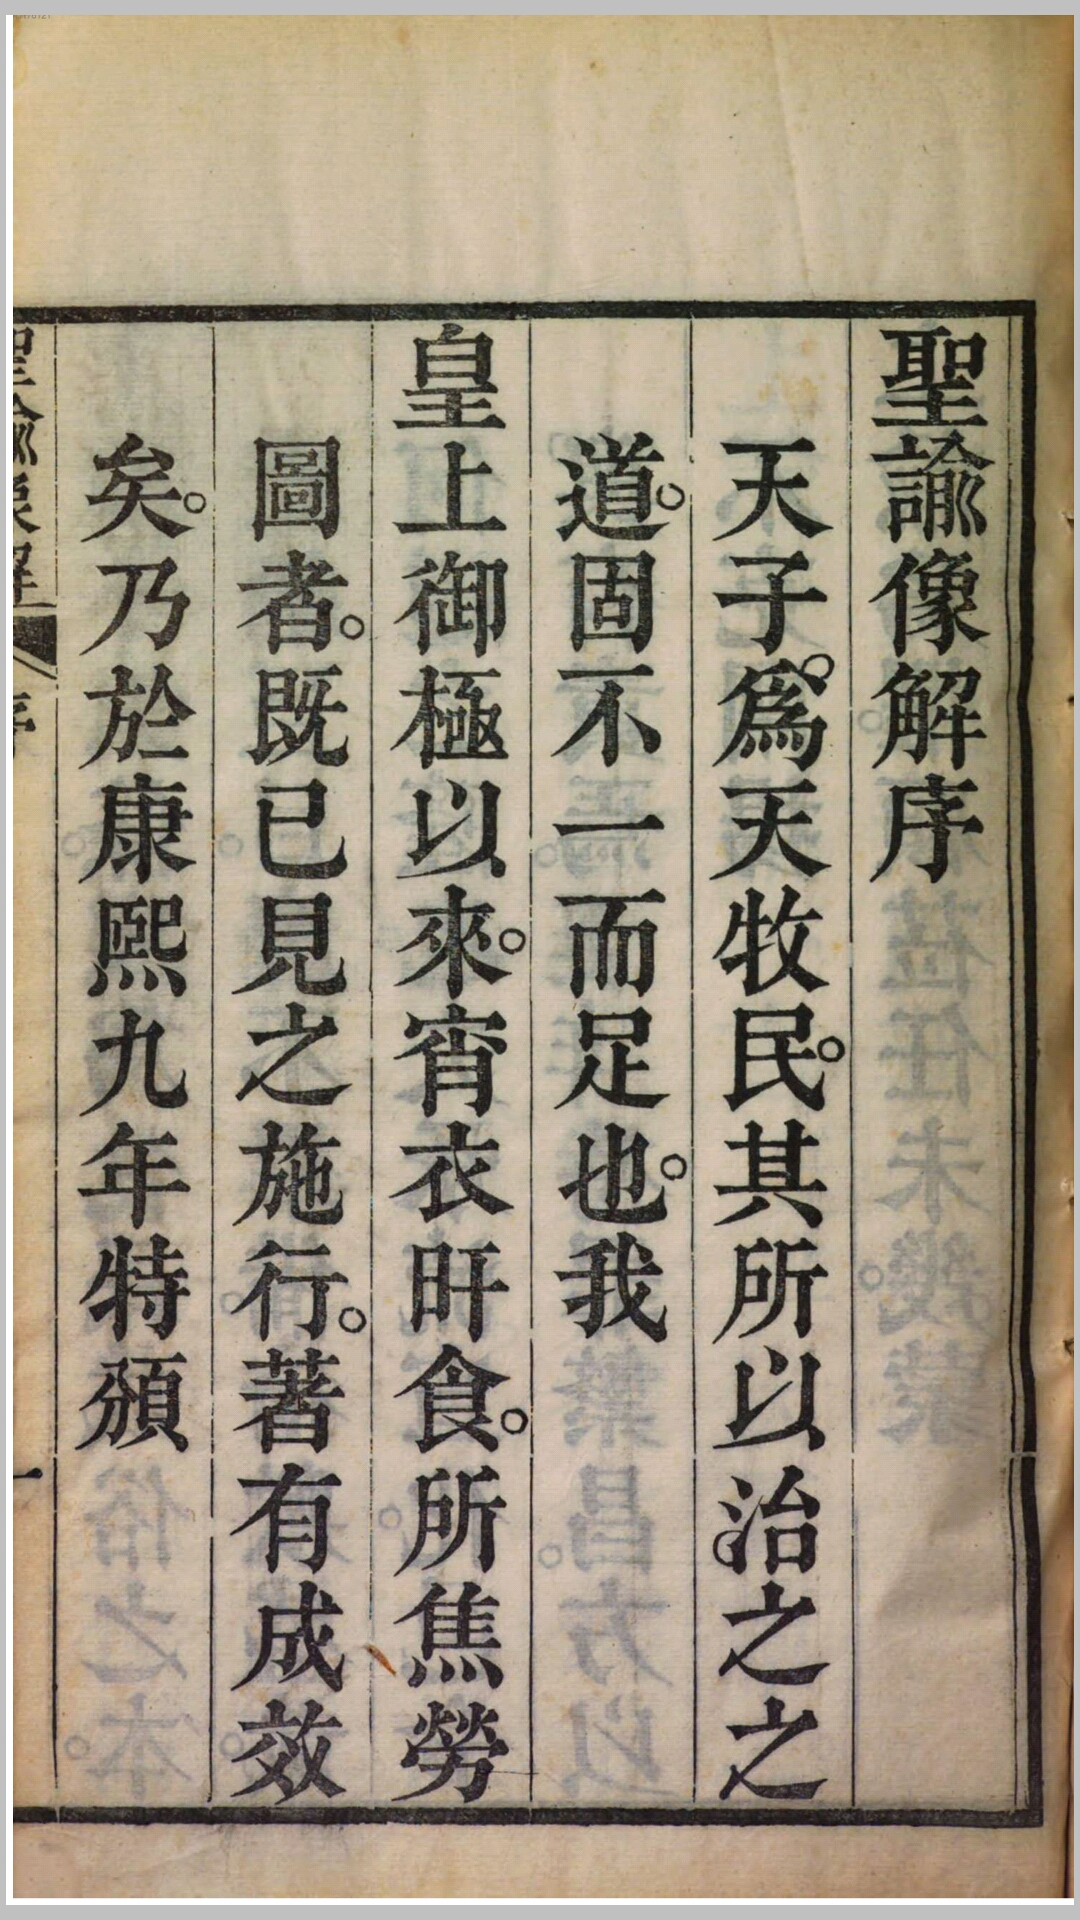 聖諭像解序
天子。爲天牧民。其所以治之之
道。固不一而足也。我
皇上御極以來。宵衣旰食。所焦勞
圖者。既已見之施行。著有成效
矣。乃於康熙九年特頒
聖諭像解 序 一